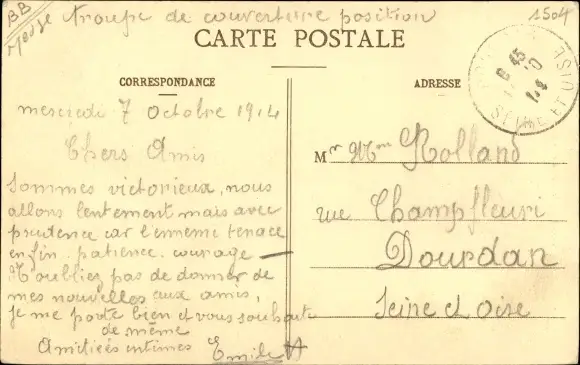 BB
troupe de couverture position
1504
CARTE POSTALE
CORRESPONDANCE
ADRESSE
mercredi 7 octobre 1914
Chers Amis
Sommes victorieux, nous
allons lentement mais avec
prutence car l'enneme tenace
enfin. patience. courage —
N'oubliez pas de donner de
mes nouvelles aux amis,
je me porte bien et vous souhait
de même
Amitieés intimes Emile A
Mr Mme Rolland
rue Champfleuri
Dourdan
Seine et Oise
SEINE ET OISE